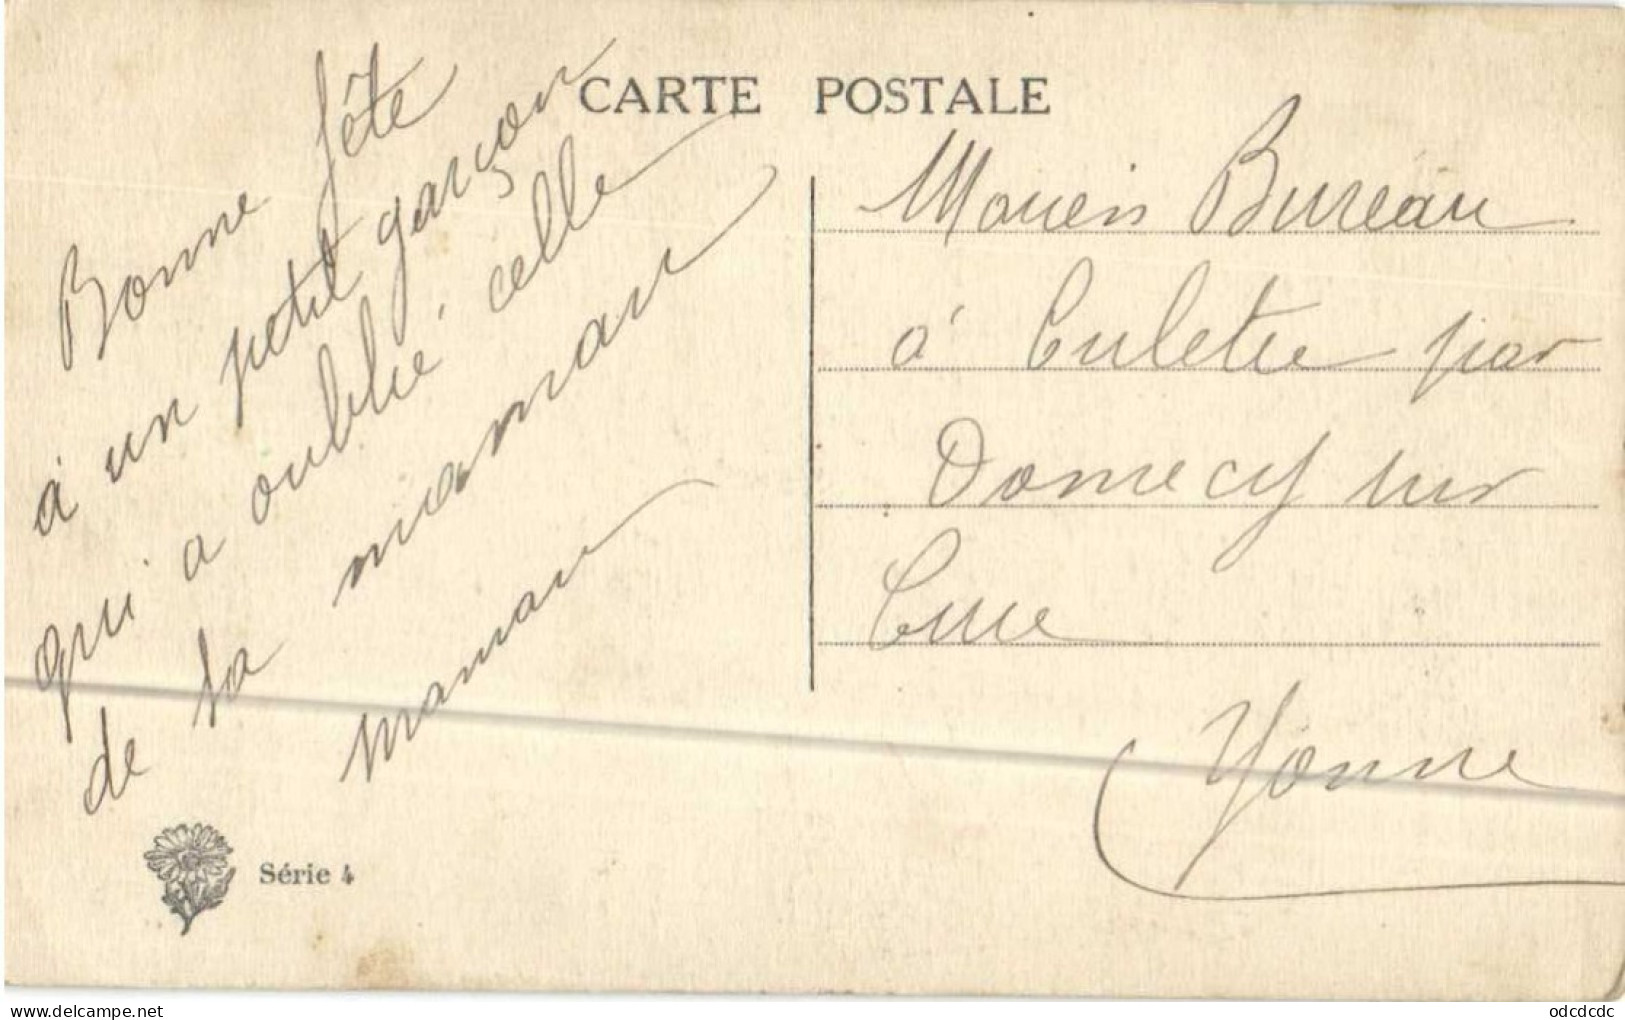 CARTE POSTALE
Bonne fête
à un petit garçon
qui a oublié celle
de sa maman
maman
Série 4
Bureau
à Culetre par
Domecy sur
Cure
Yonne
delcampe.net
odcdcdc